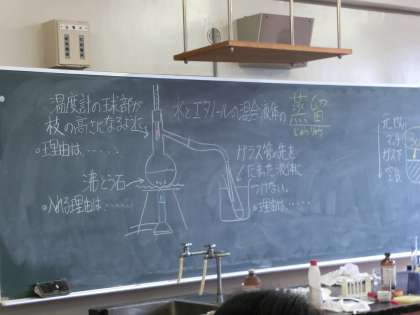 水とエタノールの混合液体の 蒸留
じょうりゅう
温度計の球部が
枝の高さになるように。
・理由は……
沸とう石
・入れる理由は……
ガラス管の先を
出来た液体に
つけない。
・理由は……
元せん